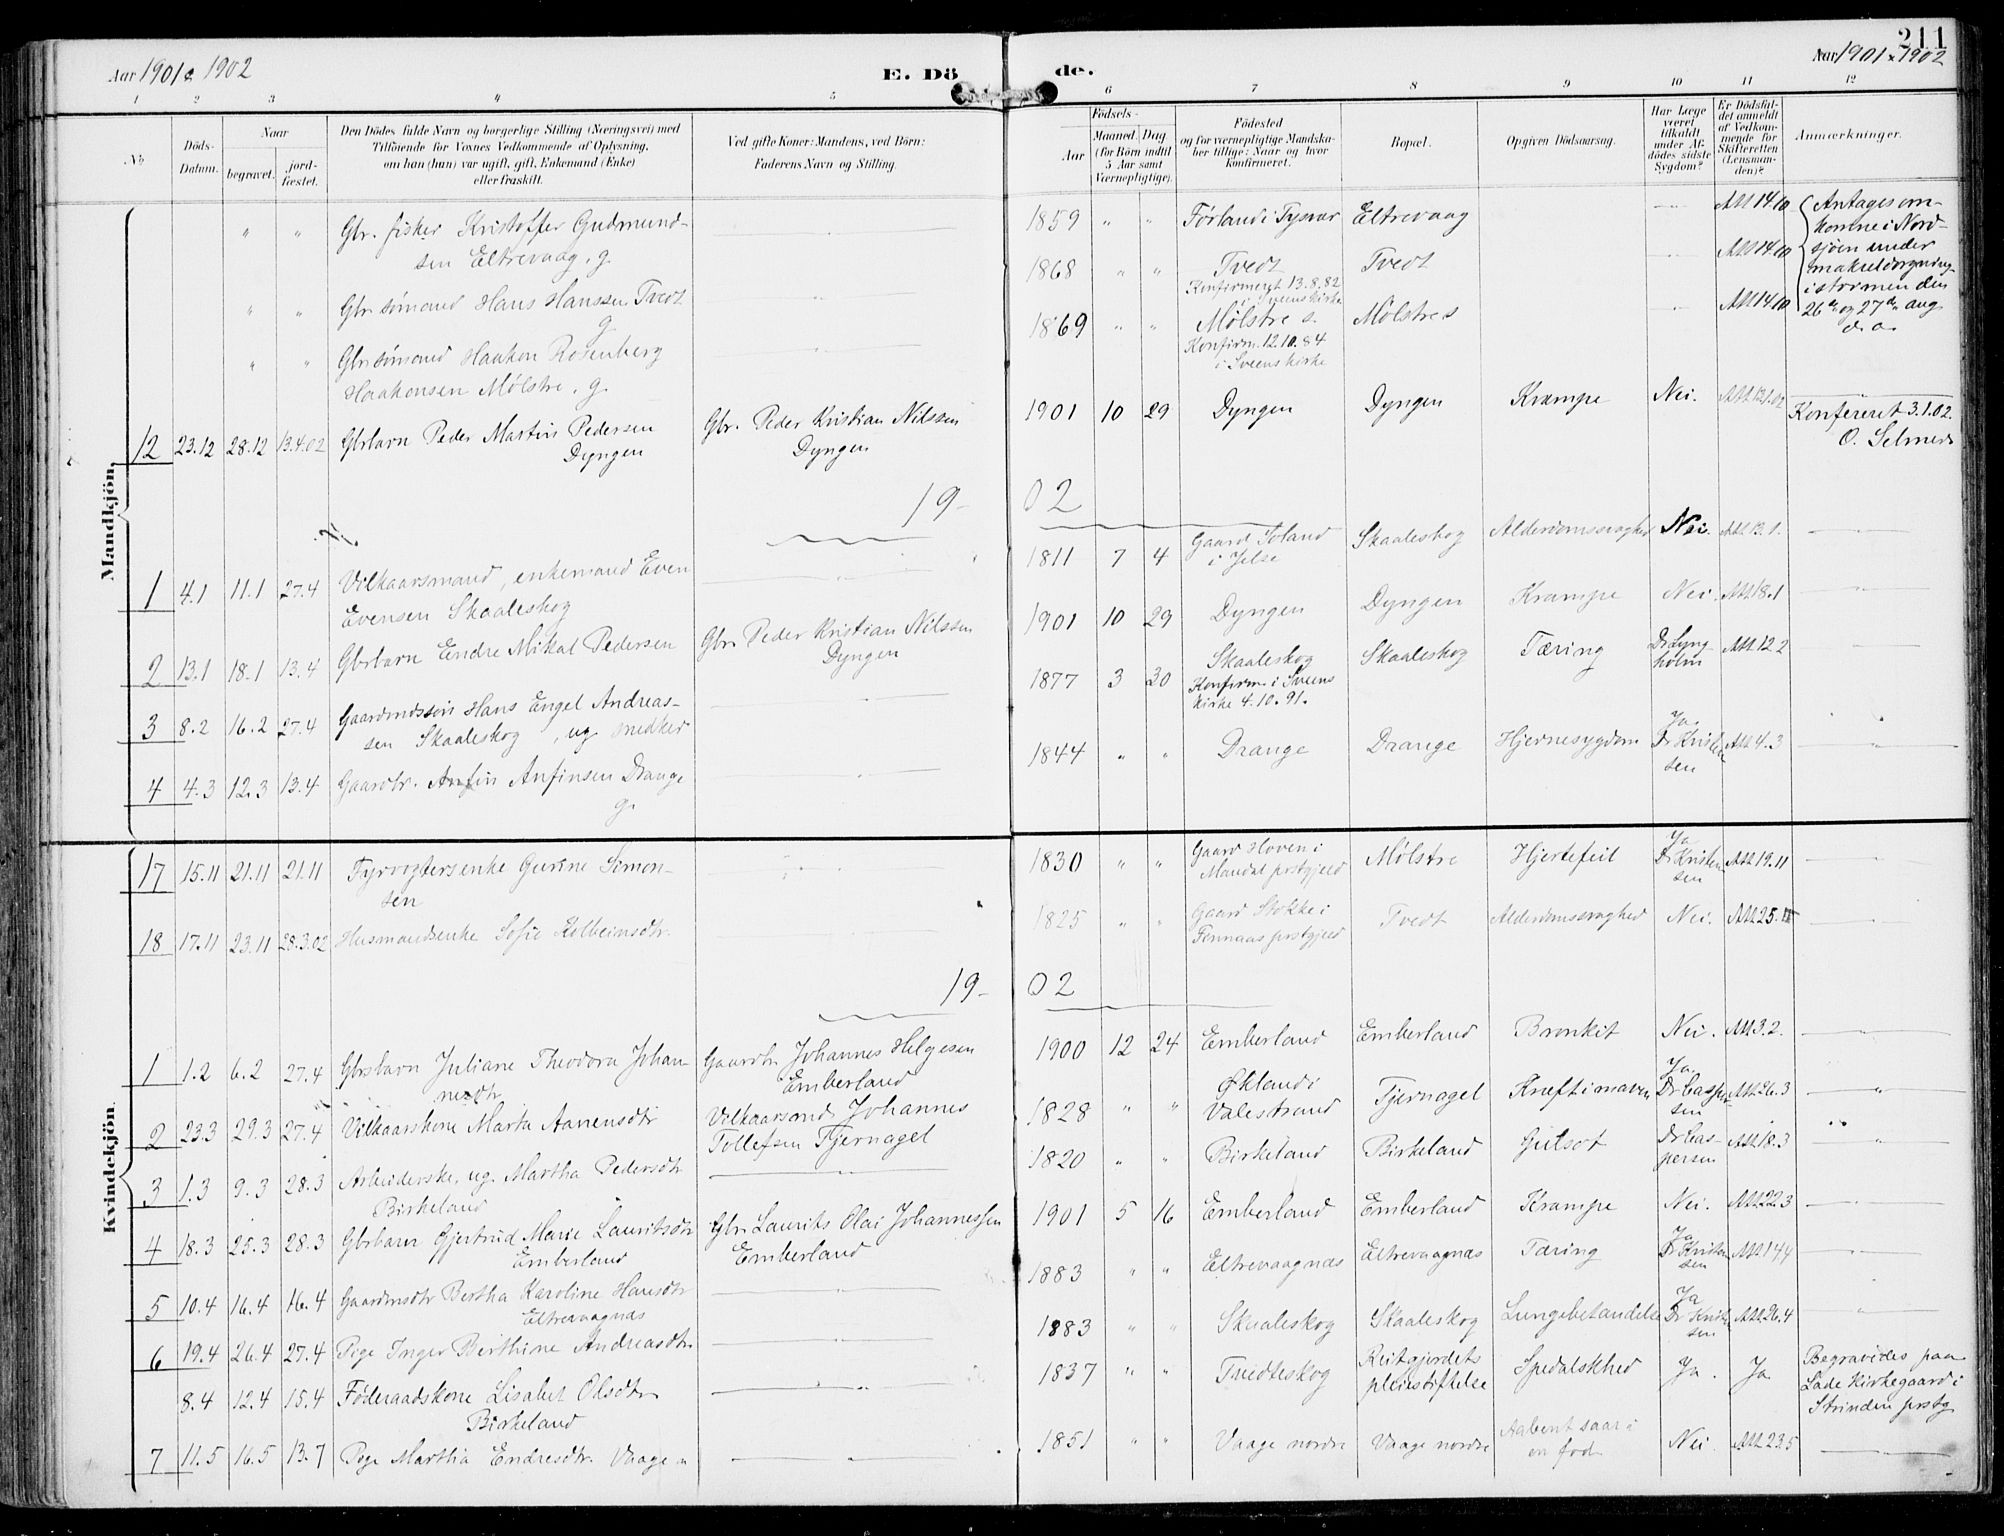 Aar 1901 & 1902
E. Dö
de.
Aar 1901 & 1902
211
1 2 3 4 5 6 7 8 9 10 11 12
No
Döds-
Datum.
Naar
begravet.
jord-
fæstet.
Den Dödes fulde Navn og borgerlige Stilling (Næringsvei) med
Tilföiende for Voxnes Vedkommende af Oplysning,
om han (hun) var ugift, gift, Enkemand (Enke)
eller fraskilt.
Ved gifte Koner: Mandens, ved Börn:
Faderens Navn og Stilling.
Födsels-
Aar
Maaned.
Dag
(for Börn indtil
5 Aar samt
Værnepligtige).
Födested
og for værnepligtige Mandska-
ber tillige: Naar og hvor
konfirmeret.
Bopæl.
Opgiven Dödsaarsag.
Har Læge
været
tilkaldt
under Af-
dödes sidste
Sygdom?
Er Dödsfal-
det anmeldt
af Vedkom-
mende for
Skifteretten
(Lensman-
den)?
Anmærkninger.
Mandkjön.
" " Gbr. fisker Kristoffer Gudmund-
sen Eltrevaag, g.
1859 " " Førland i Tysvær Eltrevaag Att 14.10
" " Gbr sømand Hans Hanssen Tvedt
g
1868 " " Tvedt Tvedt Att 14.10
Konfirmeret 13.8.82
i Sveens kirke
" " Gbr sømand Haakon Rosenberg
Haakonsen Mølstre, g.
1869 " " Mølstre s. Mølstre s Att 14.10
Konfirm. 12.10.84
i Sveens kirke
Antages om-
komne i Nord-
sjøen under
makreldorgning
i stormen den
26de og 27de aug
d. a.
12 23.12 28.12 13.4.02 Gbrbarn Peder Martin Pedersen
Dyngen
Gbr. Peder Kristian Nilssen
Dyngen
1901 10 29 Dyngen Dyngen Krampe Nei. Att 12.1.02
Konfereret 3.1.02.
O. Selmer
19-02
1 4.1 11.1 27.4 Vilkaarsmand, enkemand Even
Evensen Skaaleskog
1811 7 4 Gaard Toland
i Jelse
Skaaleskog Alderdomssvaghed Nei. Att 13.1.
2 13.1 18.1 13.4 Gbrbarn Endre Mikal Pedersen
Gbr. Peder Kristian Nilssen
Dyngen
1901 10 29 Dyngen Dyngen Krampe Nei. Att 18.1
3 8.2 16.2 27.4 Gaardmdssøn Hans Engel Andreas-
sen Skaaleskog, ug snedker
1877 3 30 Skaaleskog
Konfirm. i Sveens
kirke 4.10.91.
Skaaleskog Tæring Dr Lyng-
holm
Att 12.2
4 4.3 12.3 13.4 Gaardbr. Anfin Anfinsen Drange
g.
1844 " " Drange Drange Hjernesygdom Ja.
Dr Kristen
sen
Att 4.3
Kvindekjön.
17 15.11 21.11 21.11 Fyrvogtersenke Gurine Simon-
sen
1830 " " Gaard Hoven i
Mandal prstgjeld
Mølstre Hjertefeil Ja
Dr Kristen
sen
Att 19.11
18 17.11 23.11 28.3.02 Husmandsenke Sofie Kolbeinsdtr.
1825 " " Gaard Stokke i
Finnaas prstgjeld
Tvedt Alderdomssvaghed Nei. Att 25.11
19-02
1 1.2 6.2 27.4 Gbrsbarn Juliane Theodora Johan
nesdtr
Gaardbr Johannes Helgesen
Emberland
1900 12 24 Emberland Emberland Bronkit Nei. Att 3.2.
2 23.3 29.3 27.4 Vilkaarskone Marta Aanensdtr
Vilkaarsmd Johannes
Tollefsen Tjernagel
1828 " " Økland i
Valestrand
Tjernagel Kræft i maven Ja.
Dr Casper
sen
Att 26.3
3 1.3 9.3 28.3 Arbeiderske, ug. Martha Pedersdtr
Birkeland
1820 " " Birkeland Birkeland Gulsot Dr Cas-
persen
Att 18.3
4 18.3 25.3 28.3 Gbrbarn Gjertrud Marie Lauritsdtr
Emberland
Gbr Laurits Olai Johannessen
Emberland
1901 5 16 Emberland Emberland Krampe Nei. Att 22.3
5 10.4 16.4 16.4 Gaardmsdtr Bertha Karoline Hansdtr
Eltrevaagnæs
1883 " " Eltrevaagnæs Eltrevaagnæs Tæring Ja
Dr Kristen
sen
Att 14.4
6 19.4 26.4 27.4 Pige Inger Berthine Andreasdtr
1883 " " Skaaleskog Skaaleskog Lungebetændelse Ja
Dr Kristen
sen
Att 26.4
8.4 12.4 15.4 Føderaadskone Lisabet Olsdtr
Birkeland
1837 " " Tvedteskog Reitgjerdets
pleiestiftelse
Spedalskhed Ja. Ja
Begravedes paa
Lade kirkegaard i
Strinden prstg
7 11.5 16.5 13.7 Pige Martha Endresdtr. Vaage n
1851 " " Vaage nordre Vaage nordre Aabent saar i
en fod
Nei. Att 23.5